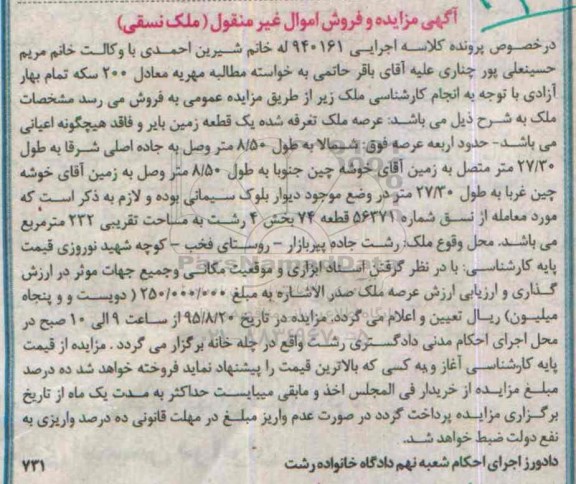 آگهی مزایده و فروش اموال غیر منقول ( ملک نسقی)
درخصوص پرونده کلاسه اجرایی ۹۴۰۱۶۱ له خانم شیرین احمدی با وکالت خانم مریم
حسینعلی پور چناری علیه آقای باقر حاتمی به خواسته مطالبه مهریه معادل ۲۰۰ سکه تمام بهار
آزادی با توجه به انجام کارشناسی ملک زیر از طریق مزایده عمومی به فروش می رسد مشخصات
ملک به شرح ذیل می باشد: عرصه ملک تعرفه شده یک قطعه زمین بایر و فاقد هیچگونه اعیانی
می باشد- حدود اربعه عرصه فوق: شمالا به طول ۸/۵۰ متر وصل به جاده اصلی شرقا به طول
۲۷/۳۰ متر متصل به زمین آقای خوشه چین جنوبا به طول ۸/۵۰ متر وصل به زمین آقای خوشه
چین غربا به طول ۲۷/۳۰ متر در وضع موجود دیوار بلوک سیمانی بوده و لازم به ذکر است که
مورد معامله از نسق شماره ۵۶۳۷۱ قطعه ۷۴ بخش ۴ رشت به مساحت تقریبی ۲۳۲ مترمربع
می باشد. محل وقوع ملک: رشت جاده پیربازار – روستای فخب – کوچه شهید نوروزی قیمت
پایه کارشناسی: با در نظر گرفتن اسناد ابرازی و موقعیت مکانی وجمیع جهات موثر در ارزش
گذاری و ارزیابی ارزش عرصه ملک صدر الاشاره به مبلغ ۲۵۰/۰۰۰/۰۰۰ ( دویست و و پنجاه
میلیون) ریال تعیین و اعلام می گردد. مزایده در تاریخ ۹۵/۸/۲۰ از ساعت ۹ الی ۱۰ صبح در
محل اجرای احکام مدنی دادگستری رشت واقع در چله خانه برگزار می گردد . مزایده از قیمت
پایه کارشناسی آغاز و به کسی که بالاترین قیمت را پیشنهاد نماید فروخته خواهد شد ده درصد
مبلغ مزایده از خریدار فی المجلس اخذ و مابقی میبایست حداکثر به مدت یک ماه از تاریخ
برگزاری مزایده پرداخت گردد در صورت عدم واریز مبلغ در مهلت قانونی ده درصد واریزی به
نفع دولت ضبط خواهد شد.
دادورز اجرای احکام شعبه نهم دادگاه خانواده رشت
۷۳۱
ParsNamadData